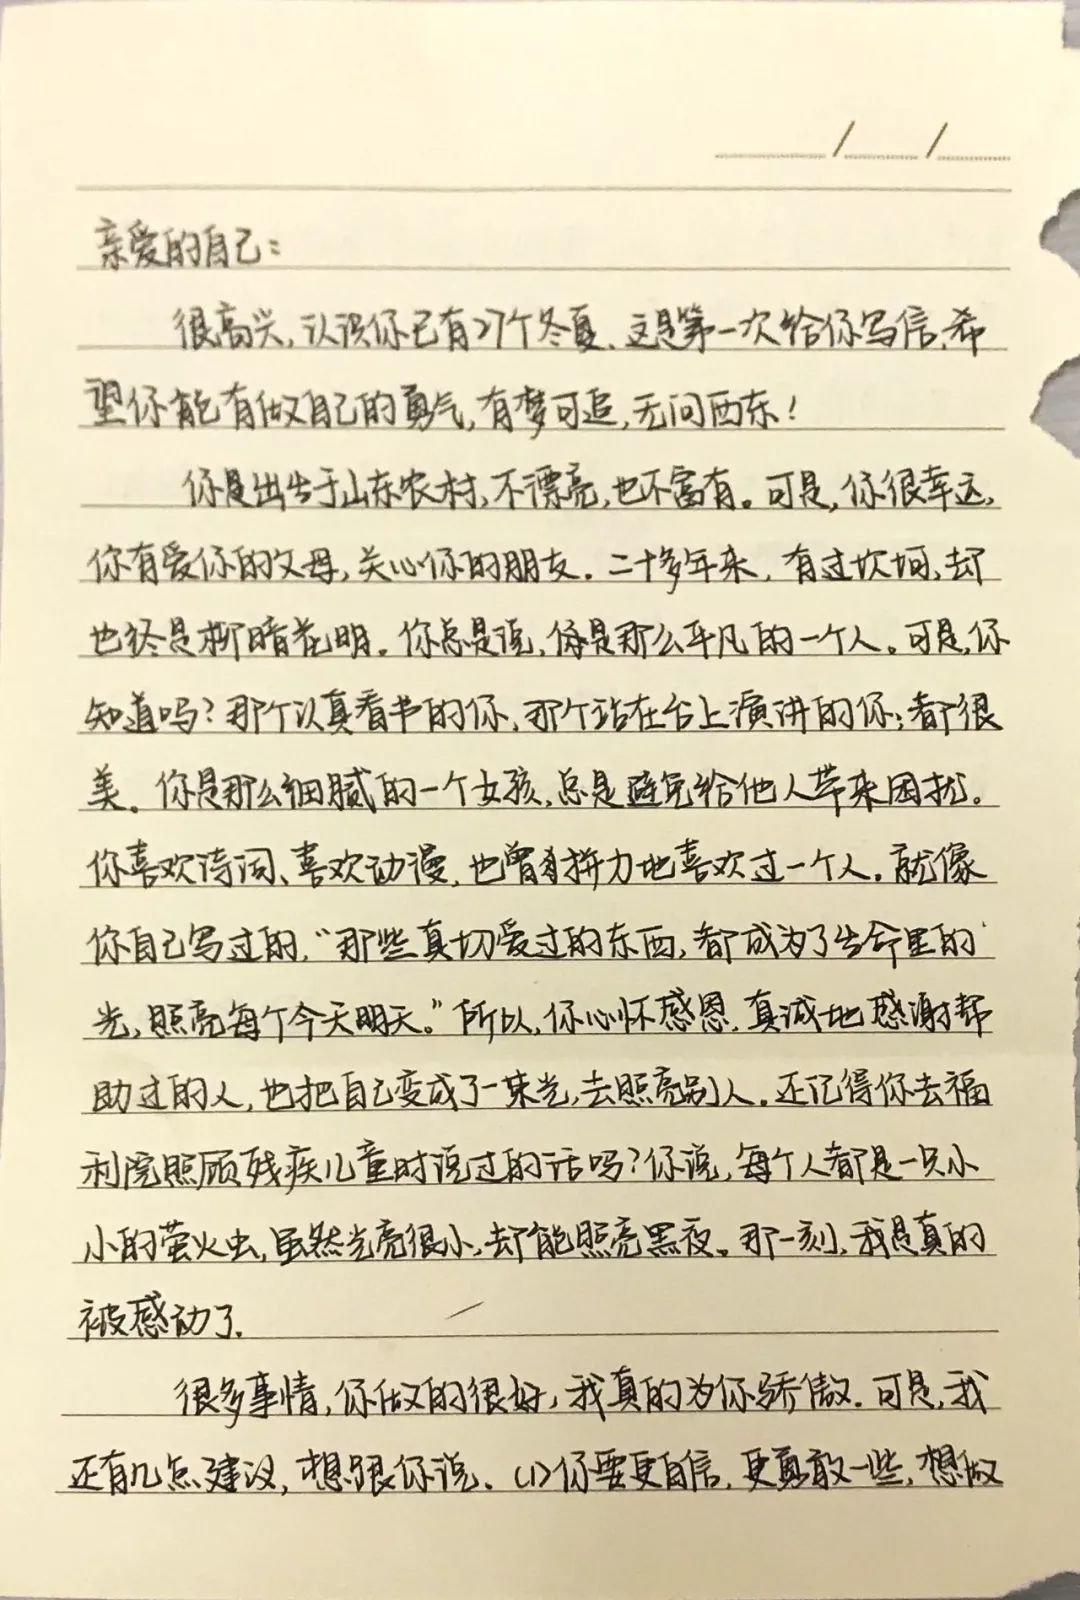 亲爱的自己：
很高兴，认识你已有27个冬夏，这是第一次给你写信，希
望你能有做自己的勇气，有梦可追，无问西东！
你是出生于山东农村，不漂亮，也不富有。可是，你很幸运，
你有爱你的父母，关心你的朋友。二十多年来，有过坎坷，却
也终是柳暗花明。你总是说，你是那么平凡的一个人。可是，你
知道吗？那个认真看书的你，那个站在台上演讲的你，都很
美。你是那么细腻的一个女孩，总是避免给他人带来困扰。
你喜欢诗词、喜欢动漫，也曾拼力地喜欢过一个人。就像
你自己写过的，“那些真切爱过的东西，都成为了生命里的
光，照亮每个今天明天。”所以，你心怀感恩，真诚地感谢帮
助过的人，也把自己变成了一束光，去照亮别人。还记得你去福
利院照顾残疾儿童时说过的话吗？你说，每个人都是一只小
小的萤火虫，虽然光亮很小，却能照亮黑夜。那一刻，我是真的
被感动了。
很多事情，你做的很好，我真的为你骄傲。可是，我
还有几点建议，想跟你说。(1)你要更自信，更勇敢一些，想做